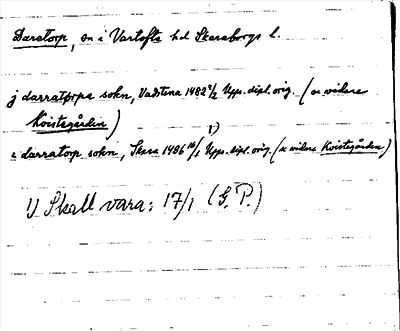 Daratorp, sn i Vartofta hd Skaraborgs l.
j darratþorpa sokn, Vadstena 1482 4/2 Upps. dipl. orig. (se vidare
Kvistegården)
i darratorp sokn, Skara 1486 16/1 1) Upps. dipl. orig. (se vidare Kvistegården)
1) Skall vara: 17/1 (G. P.)